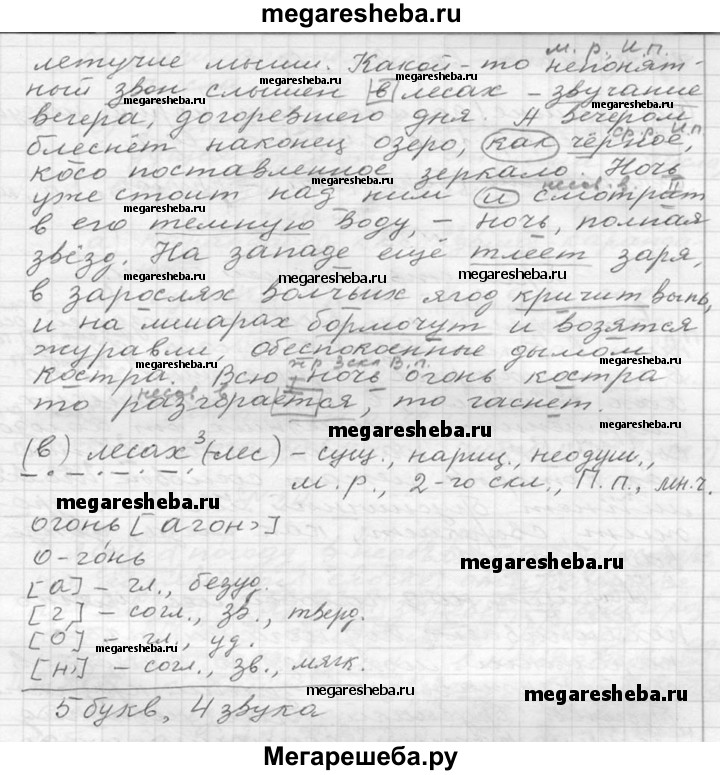 megaresheba.ru
м. р. И.п.
летучие мыши. Какой-то непонят-
ный звон слышен в лесах - звучание
megaresheba.ru
вечера, догоревшего дня. А вечером
ср. р. И.п.
блеснёт наконец озеро, как чёрное,
косо поставленное зеркало. Ночь
megaresheba.ru
уже стоит над ним и смотрит
megaresheba.ru
в его темную воду, – ночь, полная
звёзд. На западе ещё тлеет заря,
megaresheba.ru megaresheba.ru megaresheba.ru
в зарослях волчьих ягод кричит выпь,
и на мшарах бормочут и возятся
журавли, обеспокоенные дымом
ж.р. 3 скл. В. п.
костра. Всю ночь огонь костра
то разгорается, то гаснет.
megaresheba.ru megaresheba.ru
(в) лесах³ (лес) – сущ., нариц., неодуш.,
м. р., 2-го скл., П. п., мн. ч.
megaresheba.ru megaresheba.ru
огонь [агон']
о-гонь
megaresheba.ru
[а] – гл., безуд.
[г] – согл., зв., тверд.
[о́] – гл., уд.
megaresheba.ru
[н'] – согл., зв., мягк.
megaresheba.ru megaresheba.ru
5 букв, 4 звука
Мегарешеба.ру